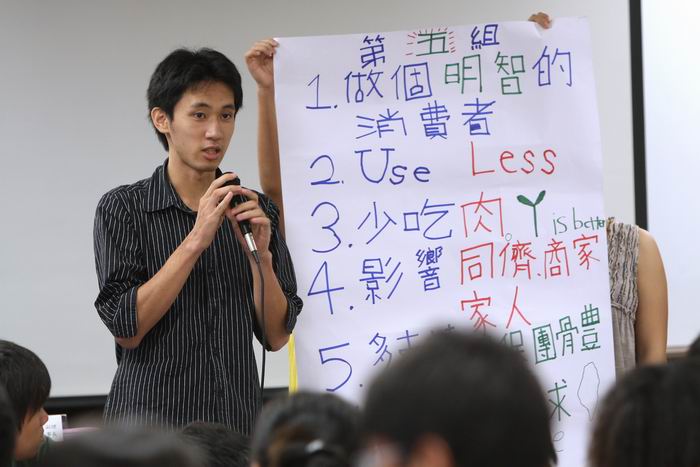 第五組
1. 做個明智的
消費者
2. Use Less
3. 少吃肉。 is better
4. 影響同儕.商家
家人
5. 多 團體
求